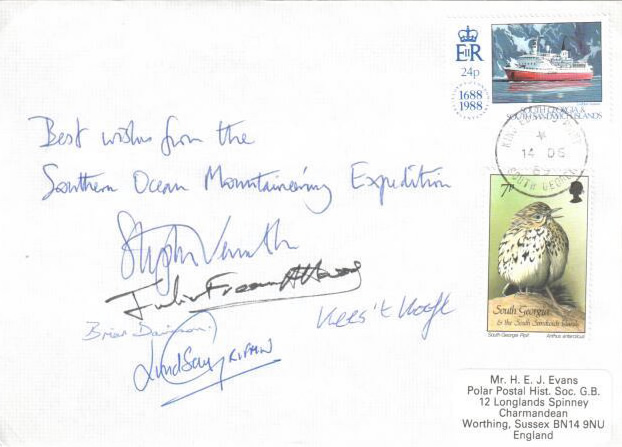 EIIR
24p
1688
1988
SOUTH GEORGIA &
SOUTH SANDWICH ISLANDS
14 DE
SOUTH GEORGIA
Best wishes from the
Southern Ocean Mountaineering Expedition
7p
South Georgia
& the South Sandwich Islands
South Georgia Pipit Anthus antarcticus
Stephen Venables
Julian Freeman-Attwood
Brian Davison
Kees 't Hooft
Lindsay GRIFFIN
Mr. H. E. J. Evans
Polar Postal Hist. Soc. G.B.
12 Longlands Spinney
Charmandean
Worthing, Sussex BN14 9NU
England